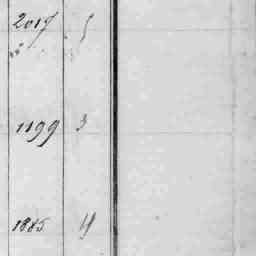 2017 5
1199 3
1885 4